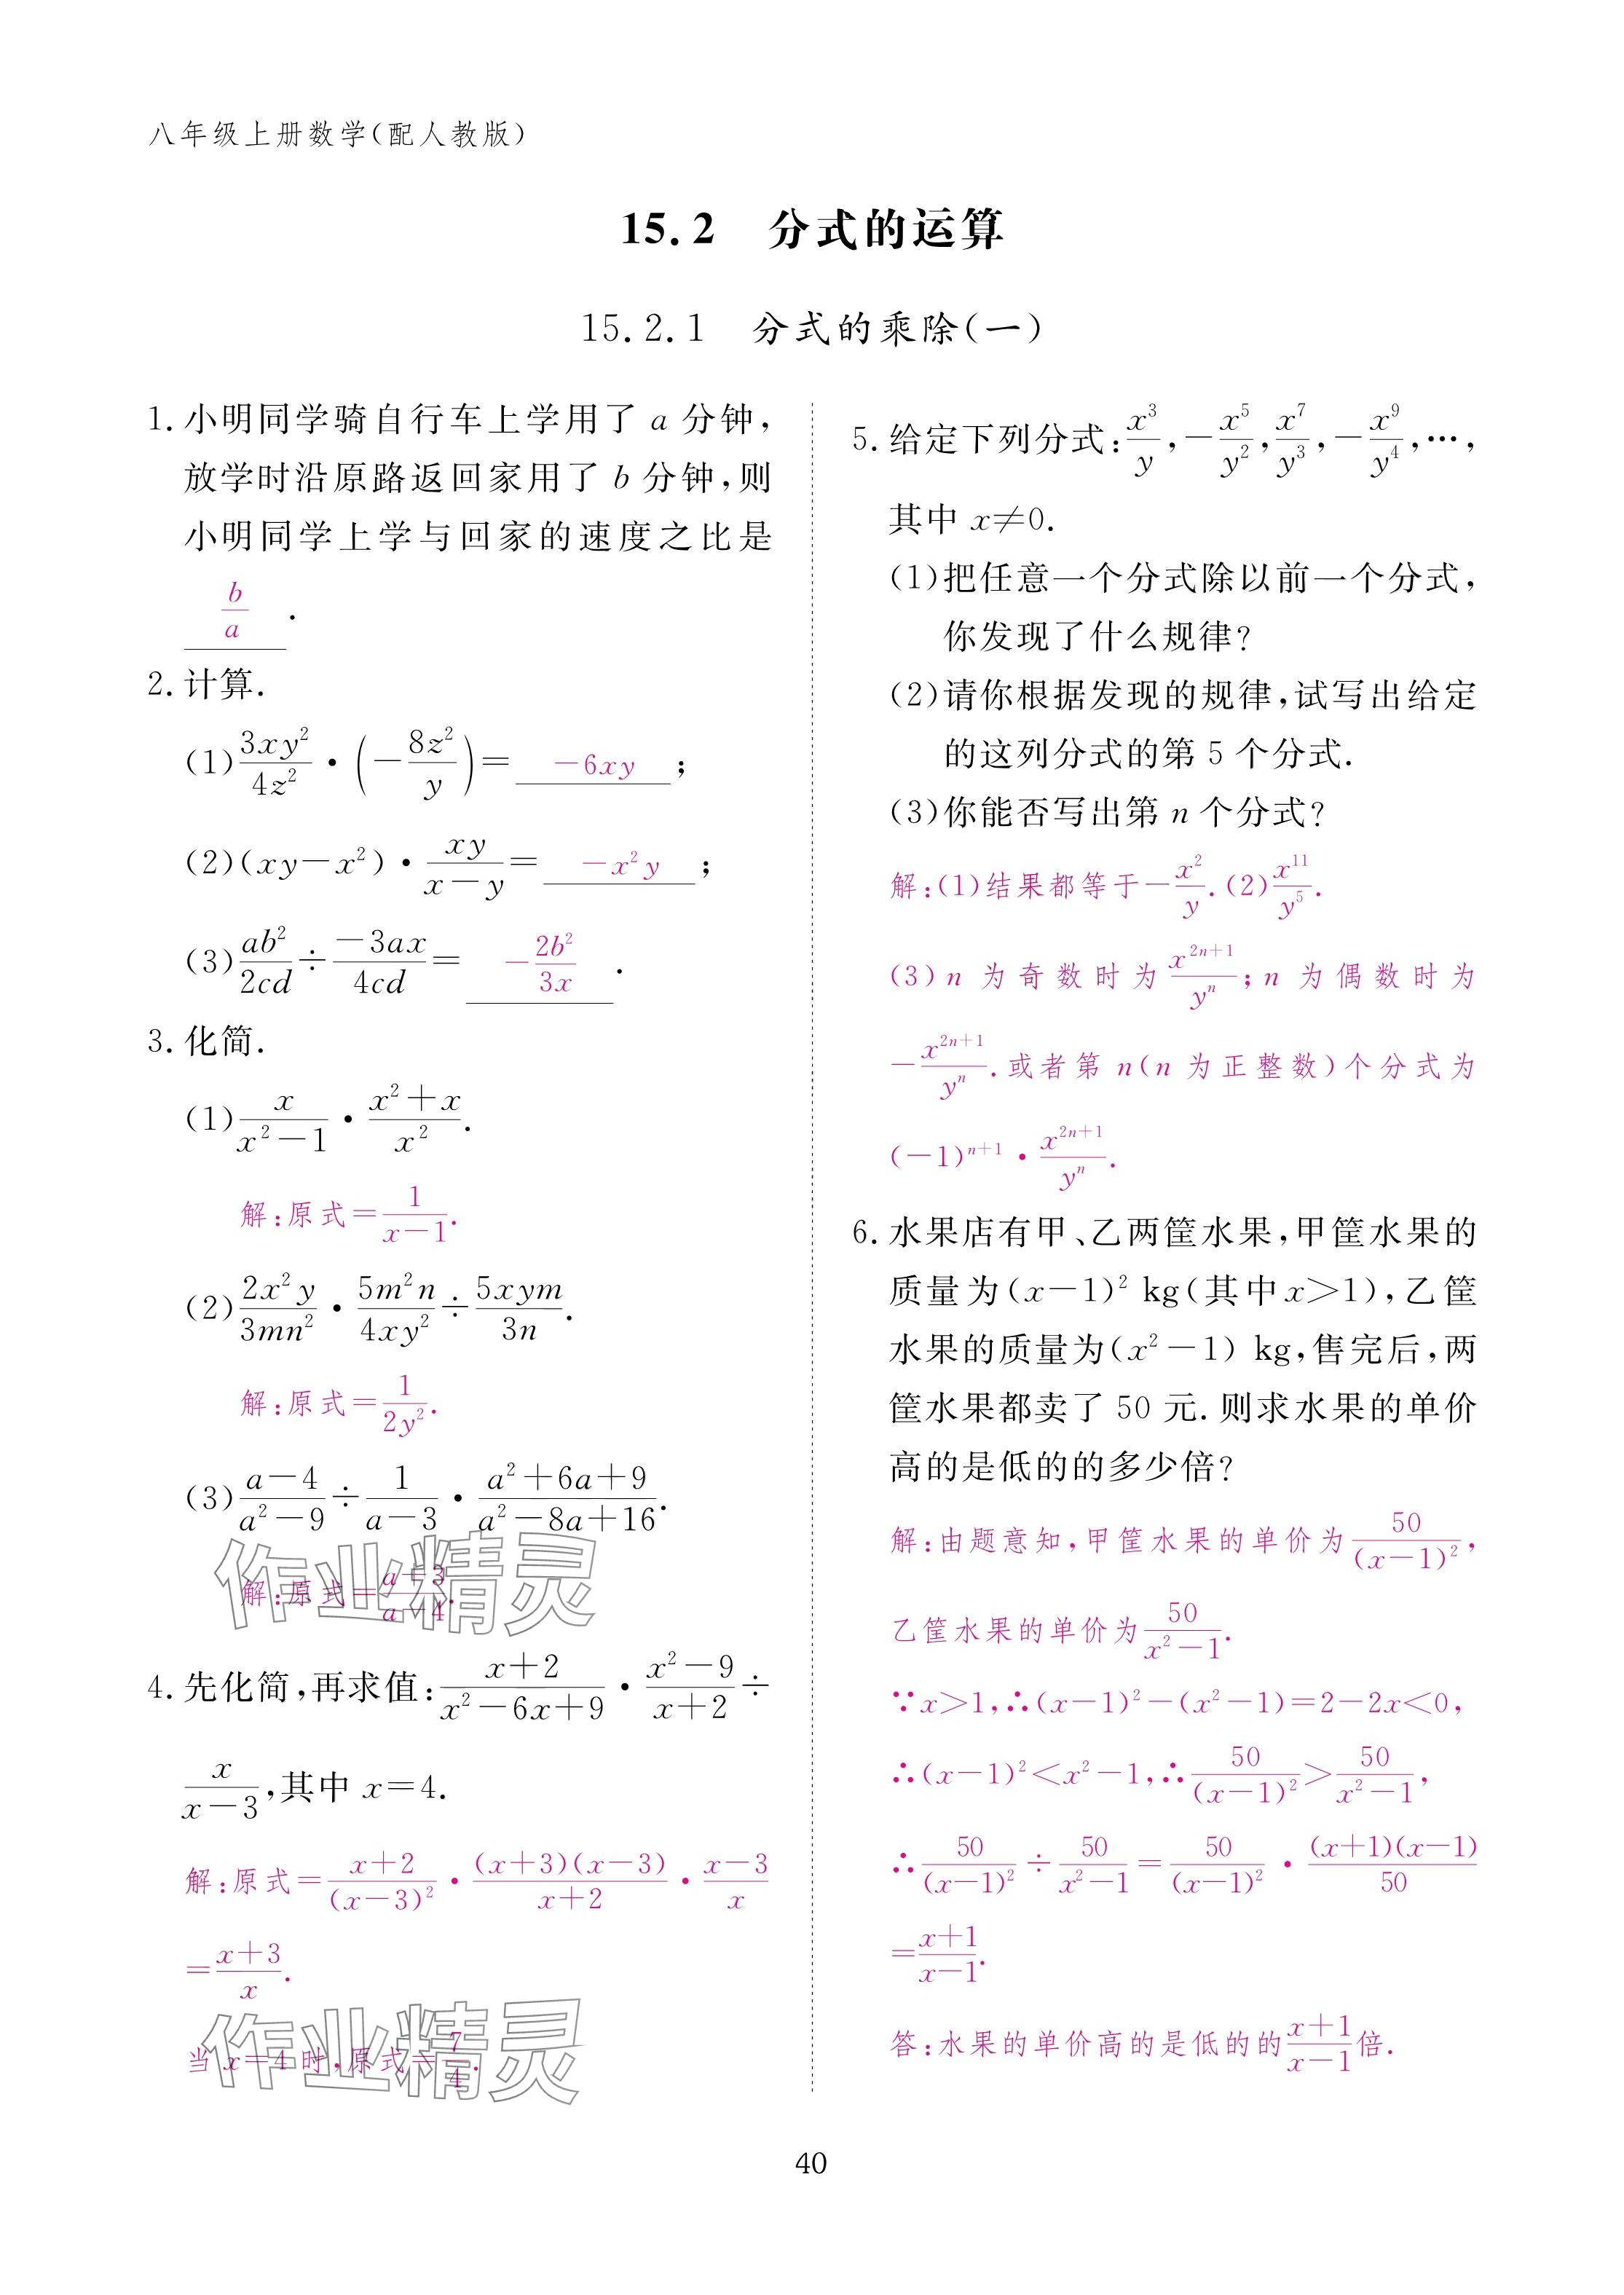 八年级上册数学(配人教版)
15.2 分式的运算
15.2.1 分式的乘除(一)
1. 小明同学骑自行车上学用了 a 分钟,
放学时沿原路返回家用了 b 分钟,则
小明同学上学与回家的速度之比是
\frac{b}{a}.
2. 计算.
(1)\frac{3xy^2}{4z^2}·(-\frac{8z^2}{y})= -6xy ;
(2)(xy-x^2)·\frac{xy}{x-y}= -x^2y ;
(3)\frac{ab^2}{2cd}÷\frac{-3ax}{4cd}= -\frac{2b^2}{3x} .
3. 化简.
(1)\frac{x}{x^2-1}·\frac{x^2+x}{x^2}.
解:原式=\frac{1}{x-1}.
(2)\frac{2x^2y}{3mn^2}·\frac{5m^2n}{4xy^2}÷\frac{5xym}{3n}.
解:原式=\frac{1}{2y^2}.
(3)\frac{a-4}{a^2-9}÷\frac{1}{a-3}·\frac{a^2+6a+9}{a^2-8a+16}.
解:原式=\frac{a+3}{a-4}.
作业精灵
4. 先化简,再求值:\frac{x+2}{x^2-6x+9}·\frac{x^2-9}{x+2}÷
\frac{x}{x-3},其中 x=4.
解:原式=\frac{x+2}{(x-3)^2}·\frac{(x+3)(x-3)}{x+2}·\frac{x-3}{x}
=\frac{x+3}{x}.
当 x=4 时,原式=\frac{7}{4}.
作业精灵
5. 给定下列分式:\frac{x^3}{y},-\frac{x^5}{y^2},\frac{x^7}{y^3},-\frac{x^9}{y^4},…,
其中 x≠0.
(1)把任意一个分式除以前一个分式,
你发现了什么规律?
(2)请你根据发现的规律,试写出给定
的这列分式的第 5 个分式.
(3)你能否写出第 n 个分式?
解:(1)结果都等于-\frac{x^2}{y}.(2)\frac{x^{11}}{y^5}.
(3) n 为奇数时为\frac{x^{2n+1}}{y^n}; n 为偶数时为
-\frac{x^{2n+1}}{y^n}.或者第 n(n 为正整数)个分式为
(-1)^{n+1}·\frac{x^{2n+1}}{y^n}.
6. 水果店有甲、乙两筐水果,甲筐水果的
质量为(x-1)^2 kg(其中x>1),乙筐
水果的质量为(x^2-1) kg,售完后,两
筐水果都卖了 50 元.则求水果的单价
高的是低的的多少倍?
解:由题意知,甲筐水果的单价为\frac{50}{(x-1)^2},
乙筐水果的单价为\frac{50}{x^2-1}.
∵x>1,∴(x-1)^2-(x^2-1)=2-2x<0,
∴(x-1)^2<x^2-1,∴\frac{50}{(x-1)^2}>\frac{50}{x^2-1},
∴\frac{50}{(x-1)^2}÷\frac{50}{x^2-1}=\frac{50}{(x-1)^2}·\frac{(x+1)(x-1)}{50}
=\frac{x+1}{x-1}.
答:水果的单价高的是低的的\frac{x+1}{x-1}倍.
40